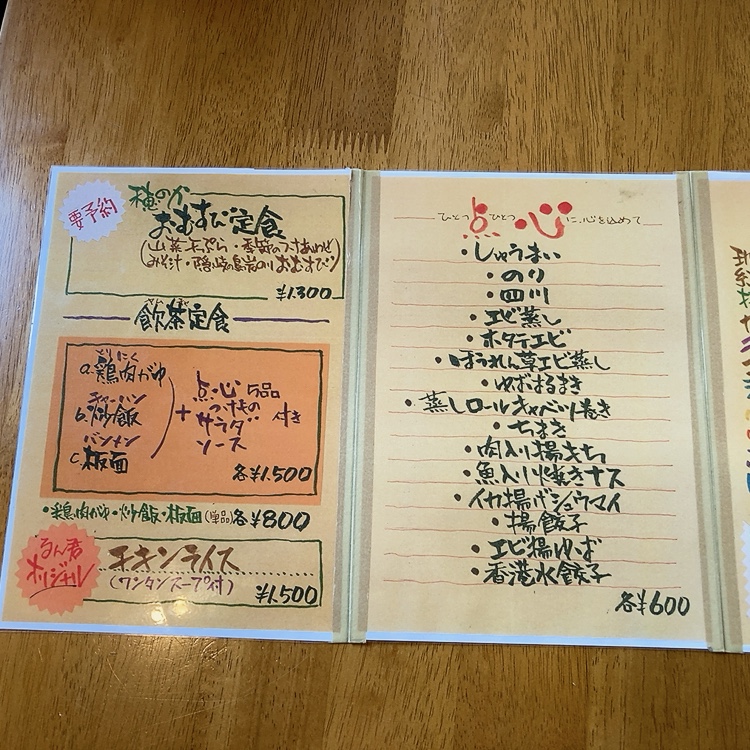 要予約
穂のか
おむすび定食
(山菜天ぷら・季節のつけあわせ
みそ汁・隠岐島岩のりおむすび)
¥1.300
飲茶定食
とりにく
a.鶏肉がゆ
チャーハン
b.炒飯
バンメン
c.板面
点心5品
つけもの
+サラダ 付き
ソース
各¥1.500
・鶏肉がゆ・炒飯・板面(単品)各¥800
るん君
オリジナル
チキンライス
(ワンタンスープ付)
¥1.500
ひとつひとつ点心に心を込めて
・しゅうまい
・のり
・四川
・エビ蒸し
・ホタテエビ
・ほうれん草エビ蒸し
・ゆばはるまき
・蒸しロールキャベツ巻き
・ちまき
・肉入り揚もち
・魚入り焼きナス
・イカ揚げシュウマイ
・揚餃子
・エビ揚ゆば
・香港水餃子
各¥600